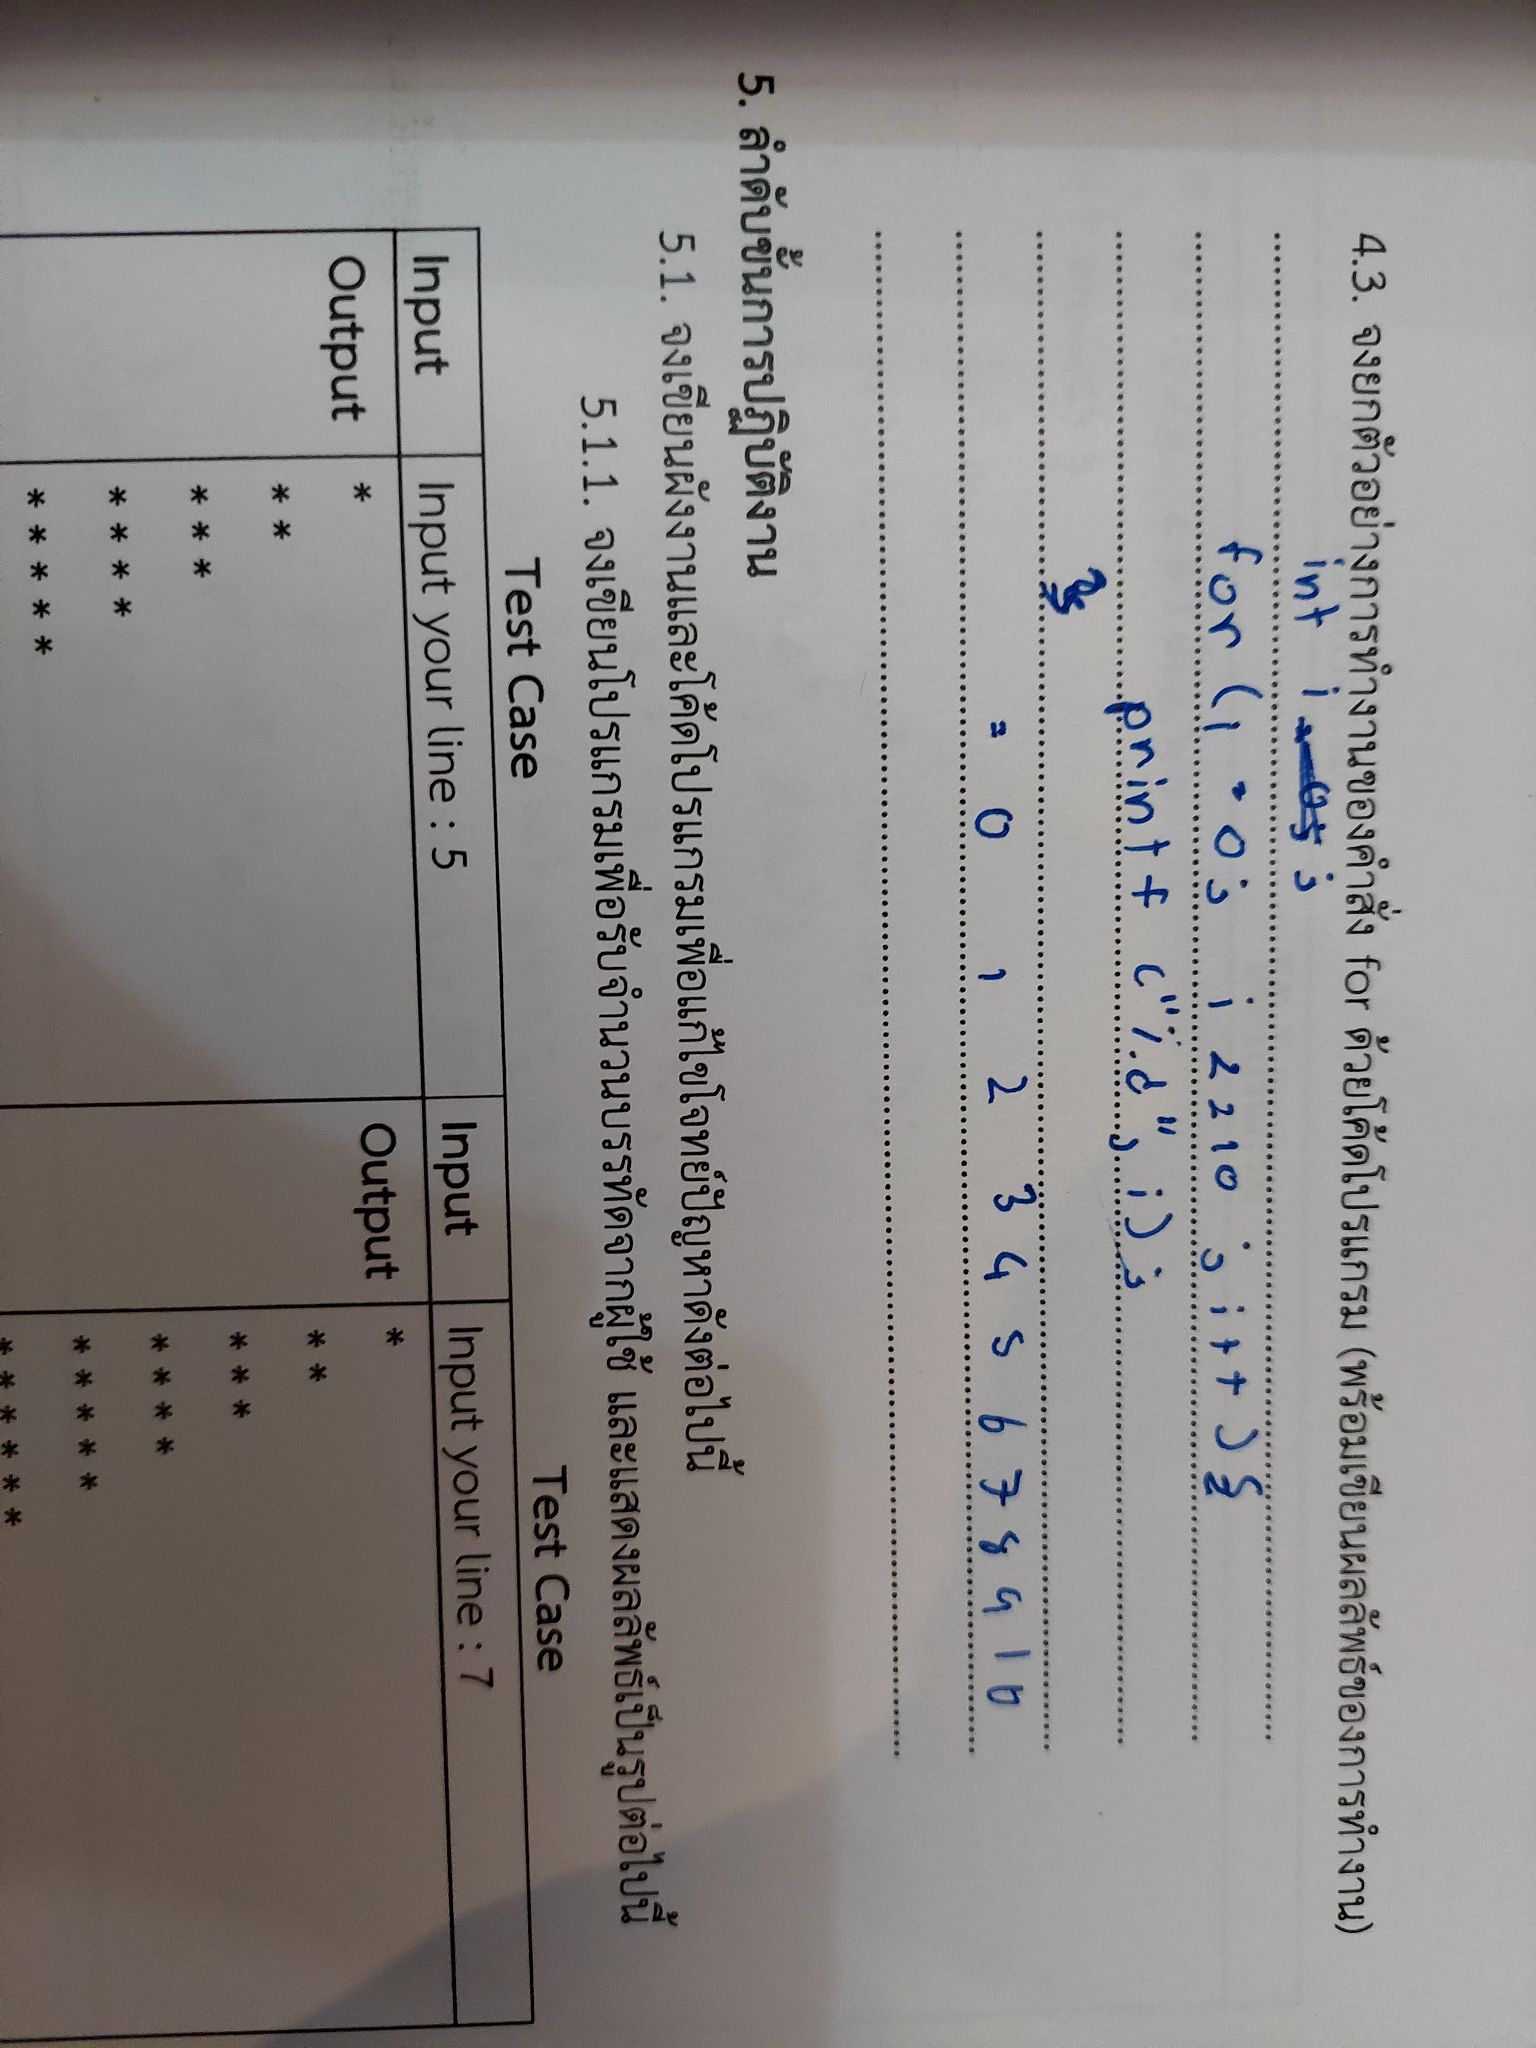 4.3. จงยกตัวอย่างการทำงานของคำสั่ง for ด้วยโค้ดโปรแกรม (พร้อมเขียนผลลัพธ์ของการทำงาน)
int i ;
for (i = 0; i <= 10 ; i++) {
printf ("%d", i);
}
= 0 1 2 3 4 5 6 7 8 9 10
5. ลำดับขั้นการปฏิบัติงาน
5.1. จงเขียนผังงานและโค้ดโปรแกรมเพื่อแก้ไขโจทย์ปัญหาดังต่อไปนี้
5.1.1. จงเขียนโปรแกรมเพื่อรับจำนวนบรรทัดจากผู้ใช้ และแสดงผลลัพธ์เป็นรูปต่อไปนี้
Test Case Test Case
Input Input your line : 5 Input Input your line : 7
Output * Output *
* * * *
* * * * * *
* * * * * * * *
* * * * * * * * * *
* * * * * *